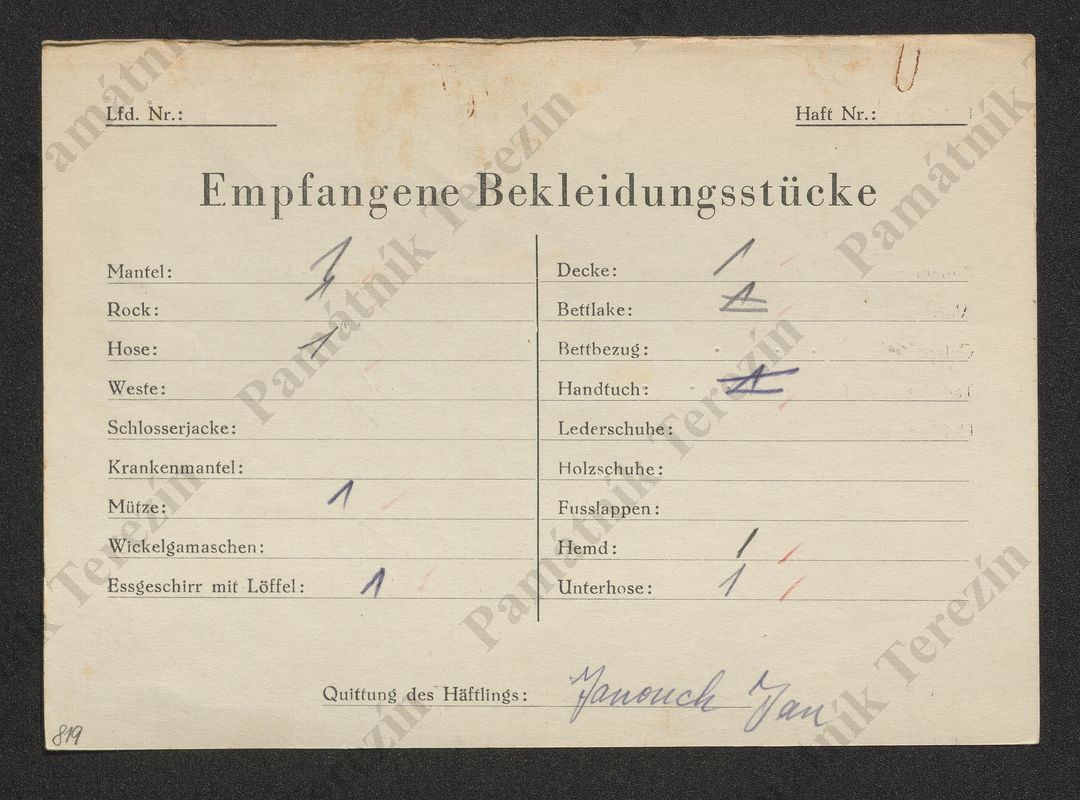 Lfd. Nr.:
Haft Nr.:
Empfangene Bekleidungsstücke
Mantel: 1
Rock: 1
Hose: 1
Weste:
Schlosserjacke:
Krankenmantel:
Mütze: 1
Wickelgamaschen:
Essgeschirr mit Löffel: 1
Decke: 1
Bettlake: 1
Bettbezug:
Handtuch: 1
Lederschuhe:
Holzschuhe:
Fusslappen:
Hemd: 1
Unterhose: 1
Quittung des Häftlings: Janouch Jan
819
Památník Terezín